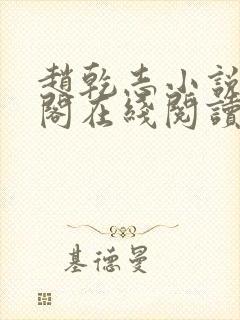 趙乾志小說
閣在綫閱讀
基德曼